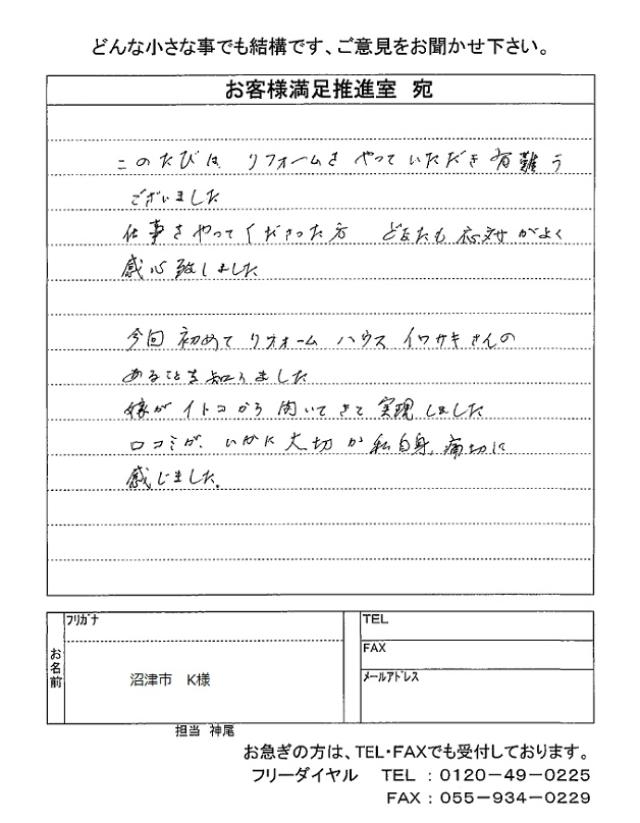 どんな小さな事でも結構です、ご意見をお聞かせ下さい。
お客様満足推進室 宛
このたびは リフォームを やっていただき 有難う
ございました
仕事をやってくださった方 どなたも 応対がよく
感心致しました
今回 初めて リフォーム ハウス イワサキさんの
あることを知りました
嫁がイトコから聞いてきて 実現しました
口コミが、いかに大切か私自身、痛切に
感じました。
フリガナ
お名前
沼津市 K様
TEL
FAX
メールアドレス
担当 神尾
お急ぎの方は、TEL・FAXでも受付しております。
フリーダイヤル TEL：0120－49－0225
FAX：055－934－0229